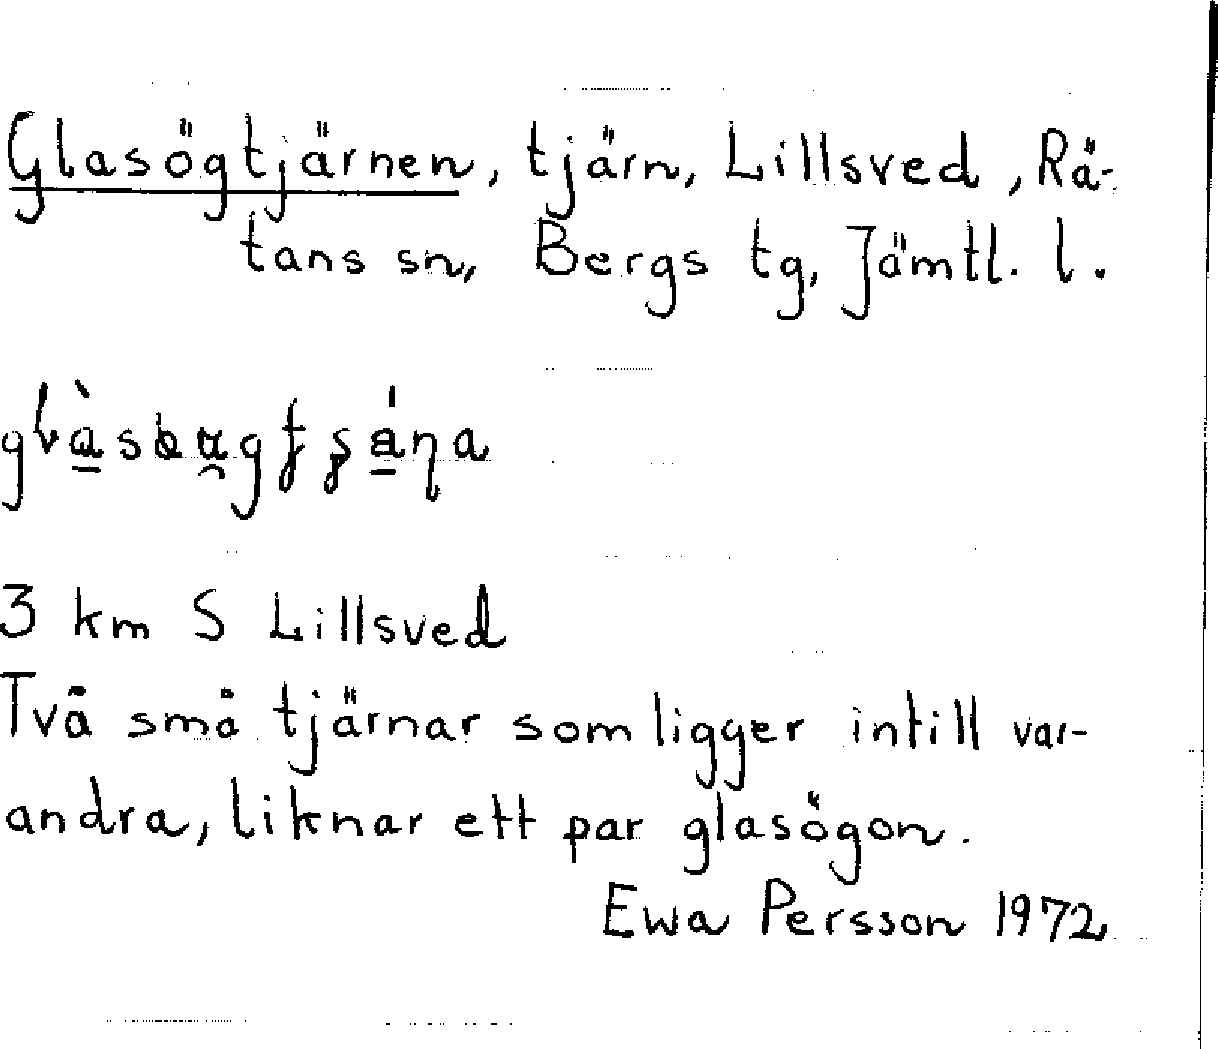 Glasögtjärnen, tjärn, Lillsved, Rä-
tans sn, Bergs tg, Jämtl. l.
3 km S Lillsved
Två små tjärnar som ligger intill var-
andra, liknar ett par glasögon.
Ewa Persson 1972